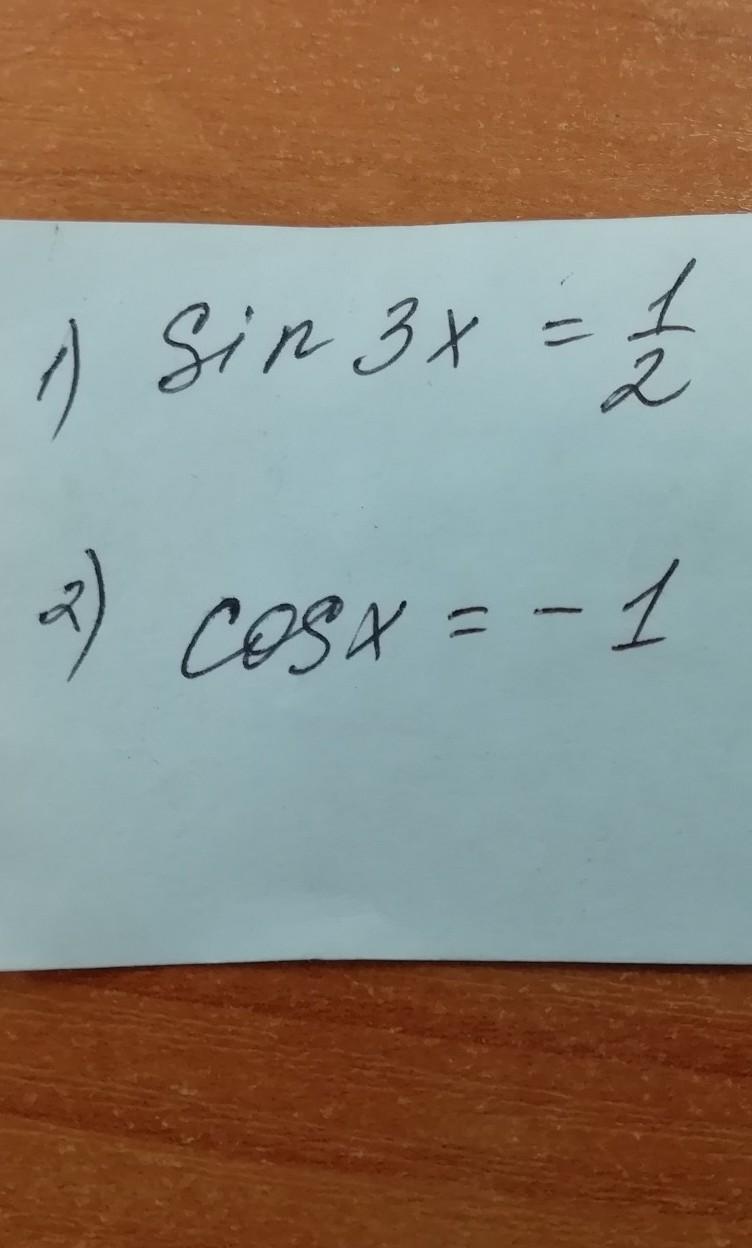 1) Sin 3x = 1/2
2) cosx = - 1